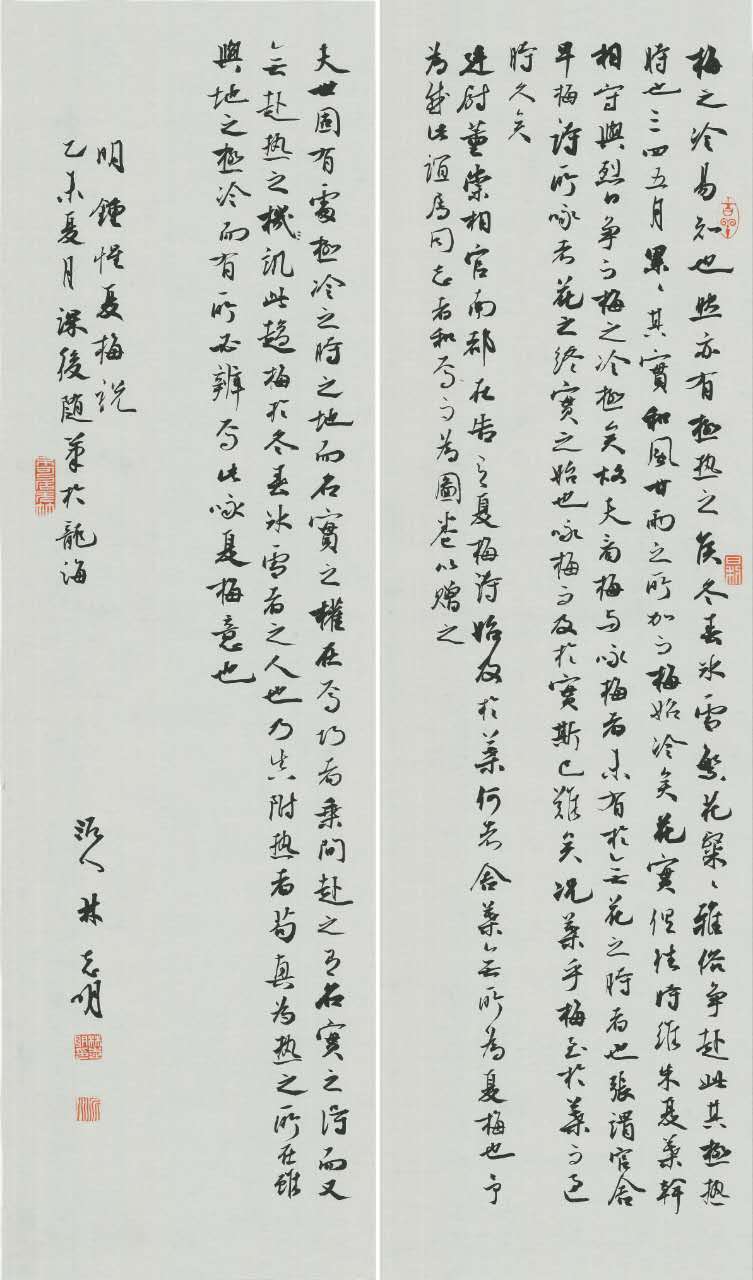 梅之冷易知也然亦有極热之矦冬春冰雪繁花粲〻雅俗争赴此其極热
時也三四五月累〻其實和風甘雨之所加而梅始冷矣花實俱往時維朱夏葉幹
相守與烈日争而梅之冷極矣故夫看梅与咏梅者未有於無花之時者也張謂官舍
早梅詩所咏者花之终實之始也咏梅而及於實斯已難矣况葉乎梅至於葉而过
時久矣
廷尉董崇相官南都在告有夏梅詩始及於葉何者舍葉無所為夏梅也予
為感此誼屬同志者和焉而為圖卷以赠之
夫世固有處極冷之時之地而名實之權在焉巧者乘間赴之有名实之得而又
無赴热之機讥此趋梅於冬春冰雪者之人也乃真附热者苟真為热之所在雖
與地之極冷而有所必辨焉此咏夏梅意也
明鍾惺夏梅説
乙未夏月課後随筆於龍海
人林志明